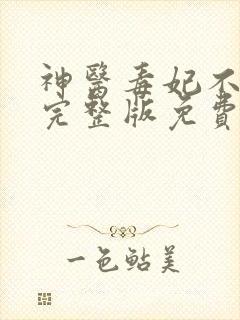 神醫毒妃不
完整版免費
一色鮎美